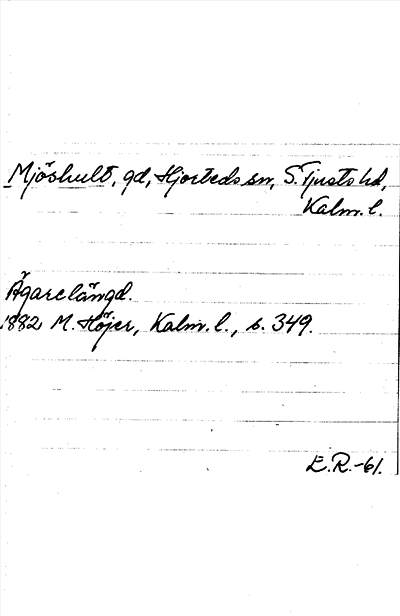 Mjöshult, gd, Hjorteds sn, S. Tjusts hd,
Kalm. l.
Ägarelängd.
1882 M. Höjer, Kalm. l., s. 349.
E.R.-61.